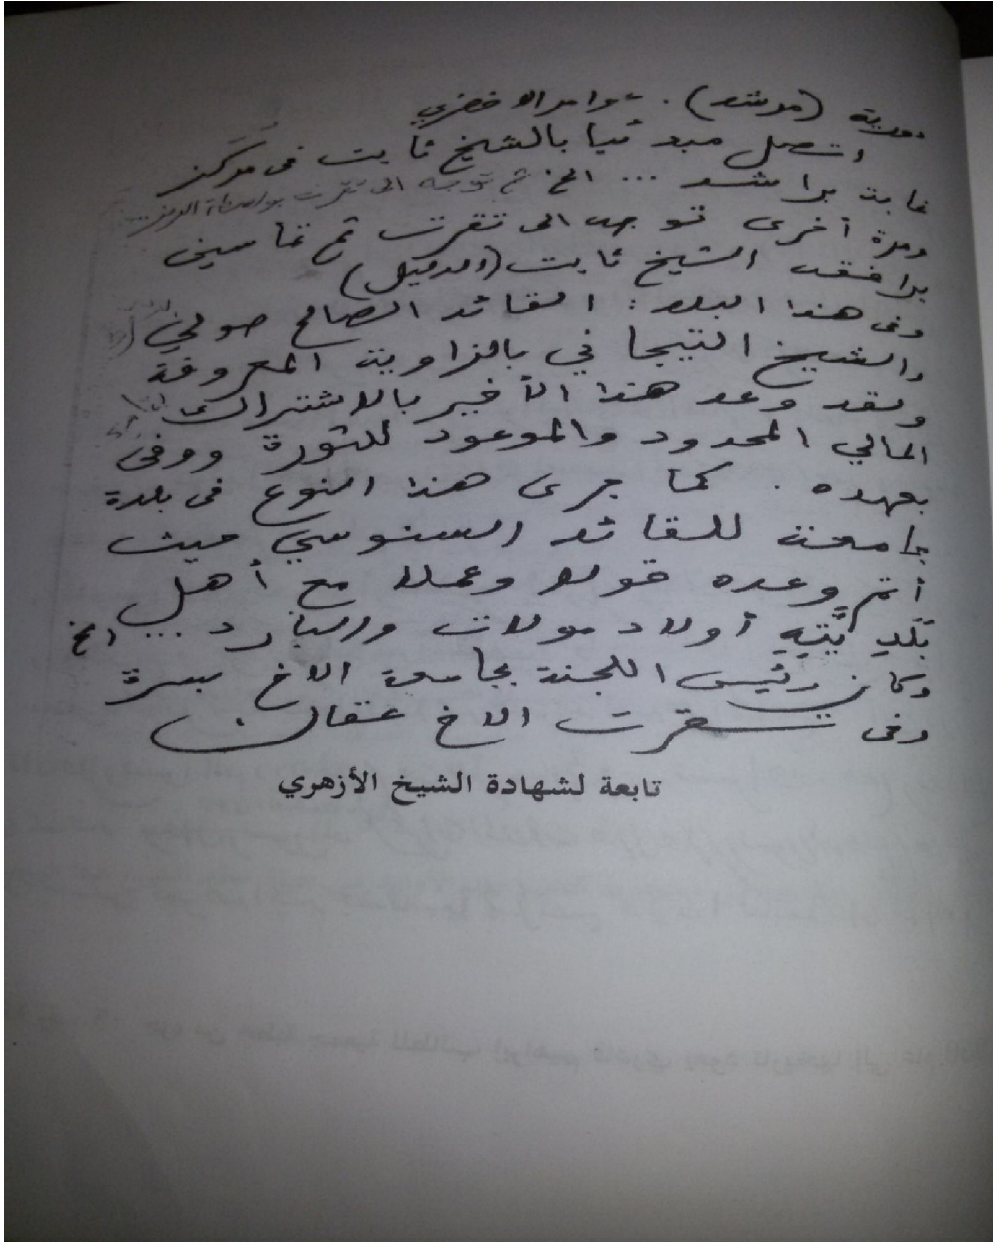 مدينة (مرشد). عامر الاخضري
اتصل مبدئيا بالشيخ ثابت فى مركز
غابة براشد ... الخ ثم توجه الى تقرت بواسطة
ومرة أخرى توجه الى تقرت ثم تماسين
يرافقه الشيخ ثابت (الدقيل)
وفى هذا البلد: القائد الصالح صولي
والشيخ التيجاني بالزاوية المعروفة
ولقد وعد هذا الأخير بالاشتراك
المالي المحدود والموعود للثورة ووفى
بعهده. كما جرى هذا النوع فى بلدة
جامعة للقائد السنوسي حيث
أتم وعده قولا وعملا مع أهل
بلديته أولاد مولات والبارد ... الخ
وكان رئيس اللجنة بجامعة الاخ بسرة
وفى تقرت الاخ عتقال.
تابعة لشهادة الشيخ الأزهري